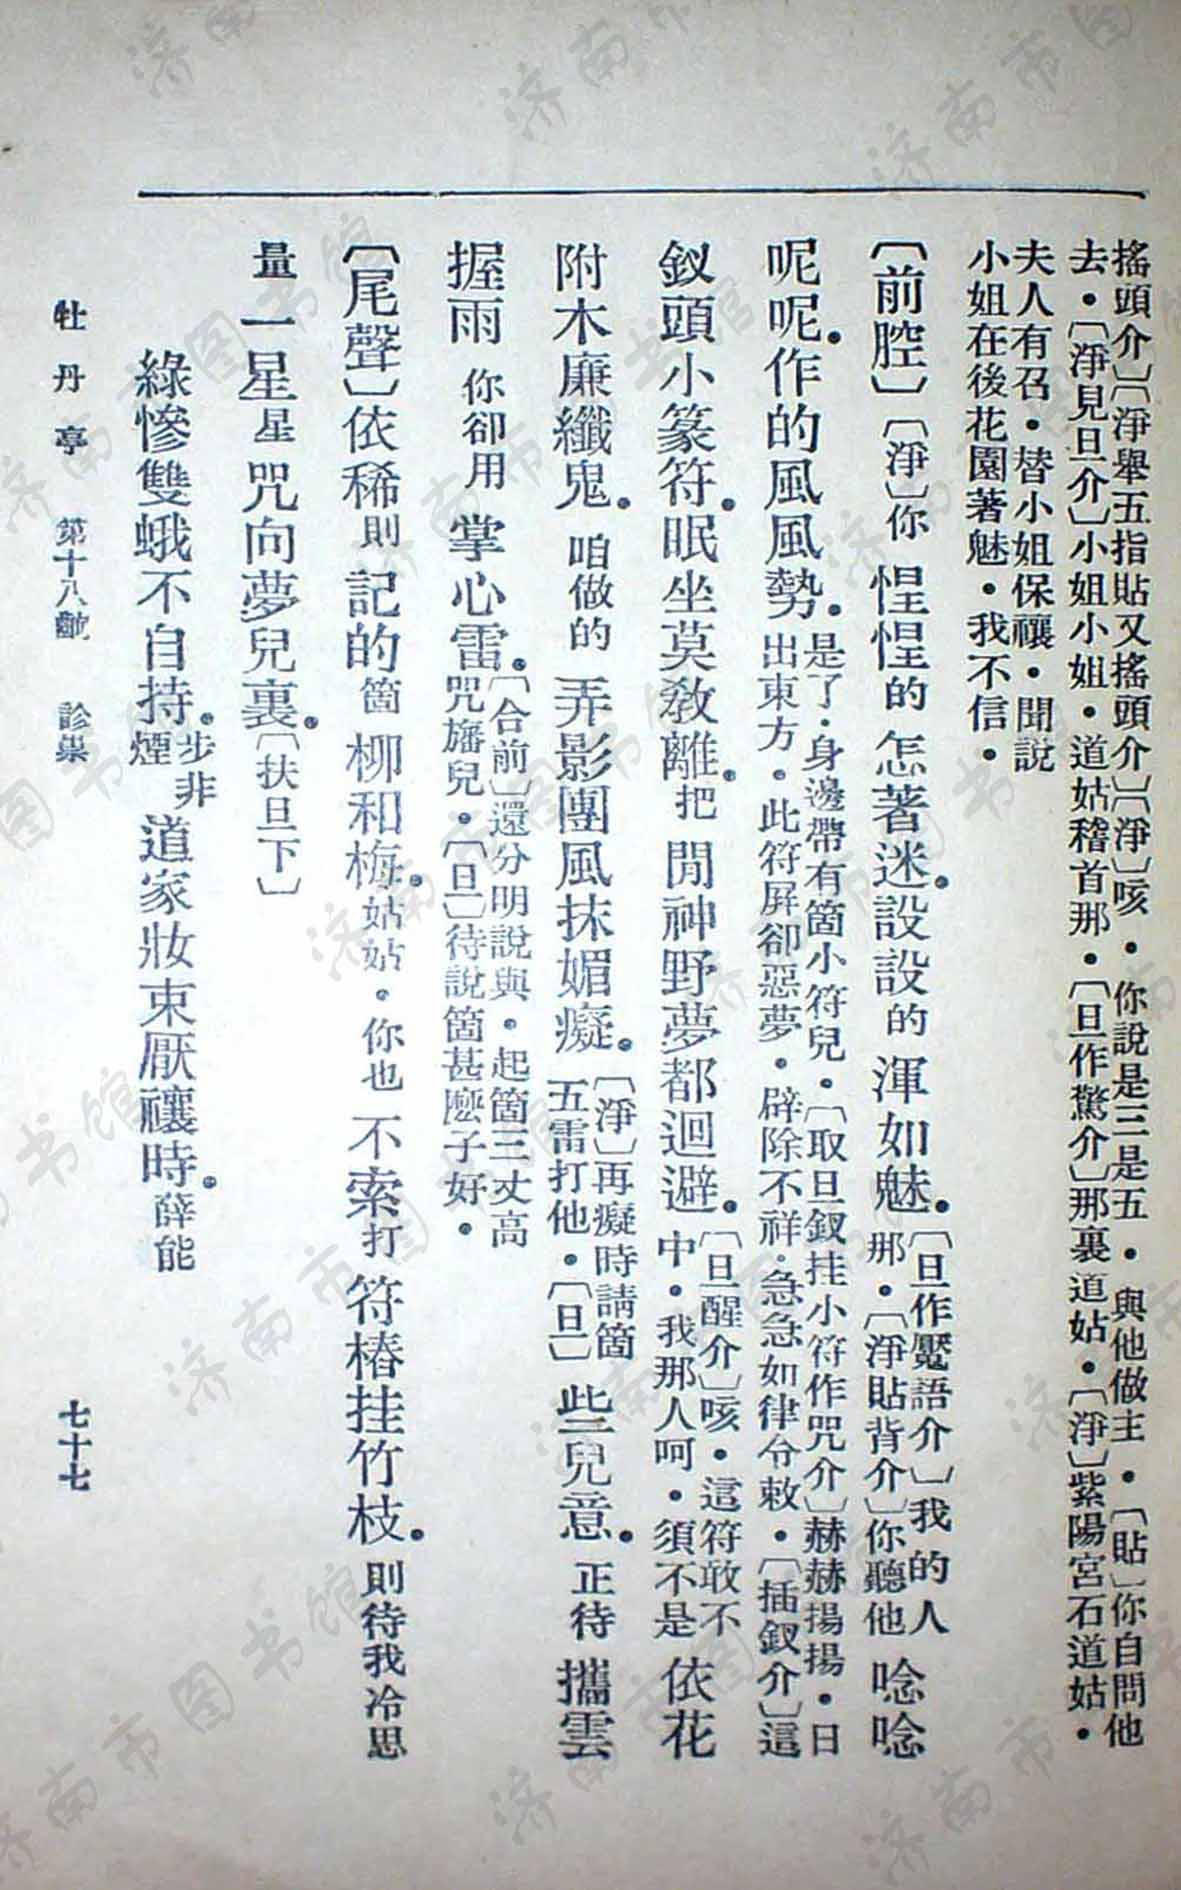 搖頭介〕〔淨舉五指貼又搖頭介〕〔淨〕咳・你說是三是五・與他做主・〔貼〕你自問他
去・〔淨見旦介〕小姐小姐・道姑稽首那・〔旦作驚介〕那裏道姑・〔淨〕紫陽宮石道姑・
夫人有召・替小姐保禳・聞說
小姐在後花園著魅・我不信・
〔前腔〕〔淨〕你惺惺的怎著迷。設設的渾如魅。〔旦作魘語介〕我的人
那・〔淨貼背介〕你聽他唸唸
呢呢。作的風風勢。是了・身邊帶有箇小符兒・〔取旦釵挂小符作咒介〕赫赫揚揚・日
出東方・此符屏卻惡夢・辟除不祥・急急如律令敕・〔插釵介〕這
釵頭小篆符。眠坐莫教離。把閒神野夢都迴避。〔旦醒介〕咳・這符敢不
中・我那人呵・須不是依花
附木廉纖鬼。咱做的弄影團風抹媚癡。〔淨〕再癡時請箇
五雷打他・〔旦〕些兒意。正待攜雲
握雨你卻用掌心雷。〔合前〕還分明說與・起箇三丈高
咒旛兒・〔旦〕待說箇甚麼子好・
〔尾聲〕依稀則記的箇柳和梅。姑姑・你也不索打符樁挂竹枝。則待我冷思
量一星星咒向夢兒裏。〔扶旦下〕
綠慘雙蛾不自持。步非
煙道家妝束厭禳時。薛能
牡丹亭 第十八齣 診祟 七十七
济南市图书馆